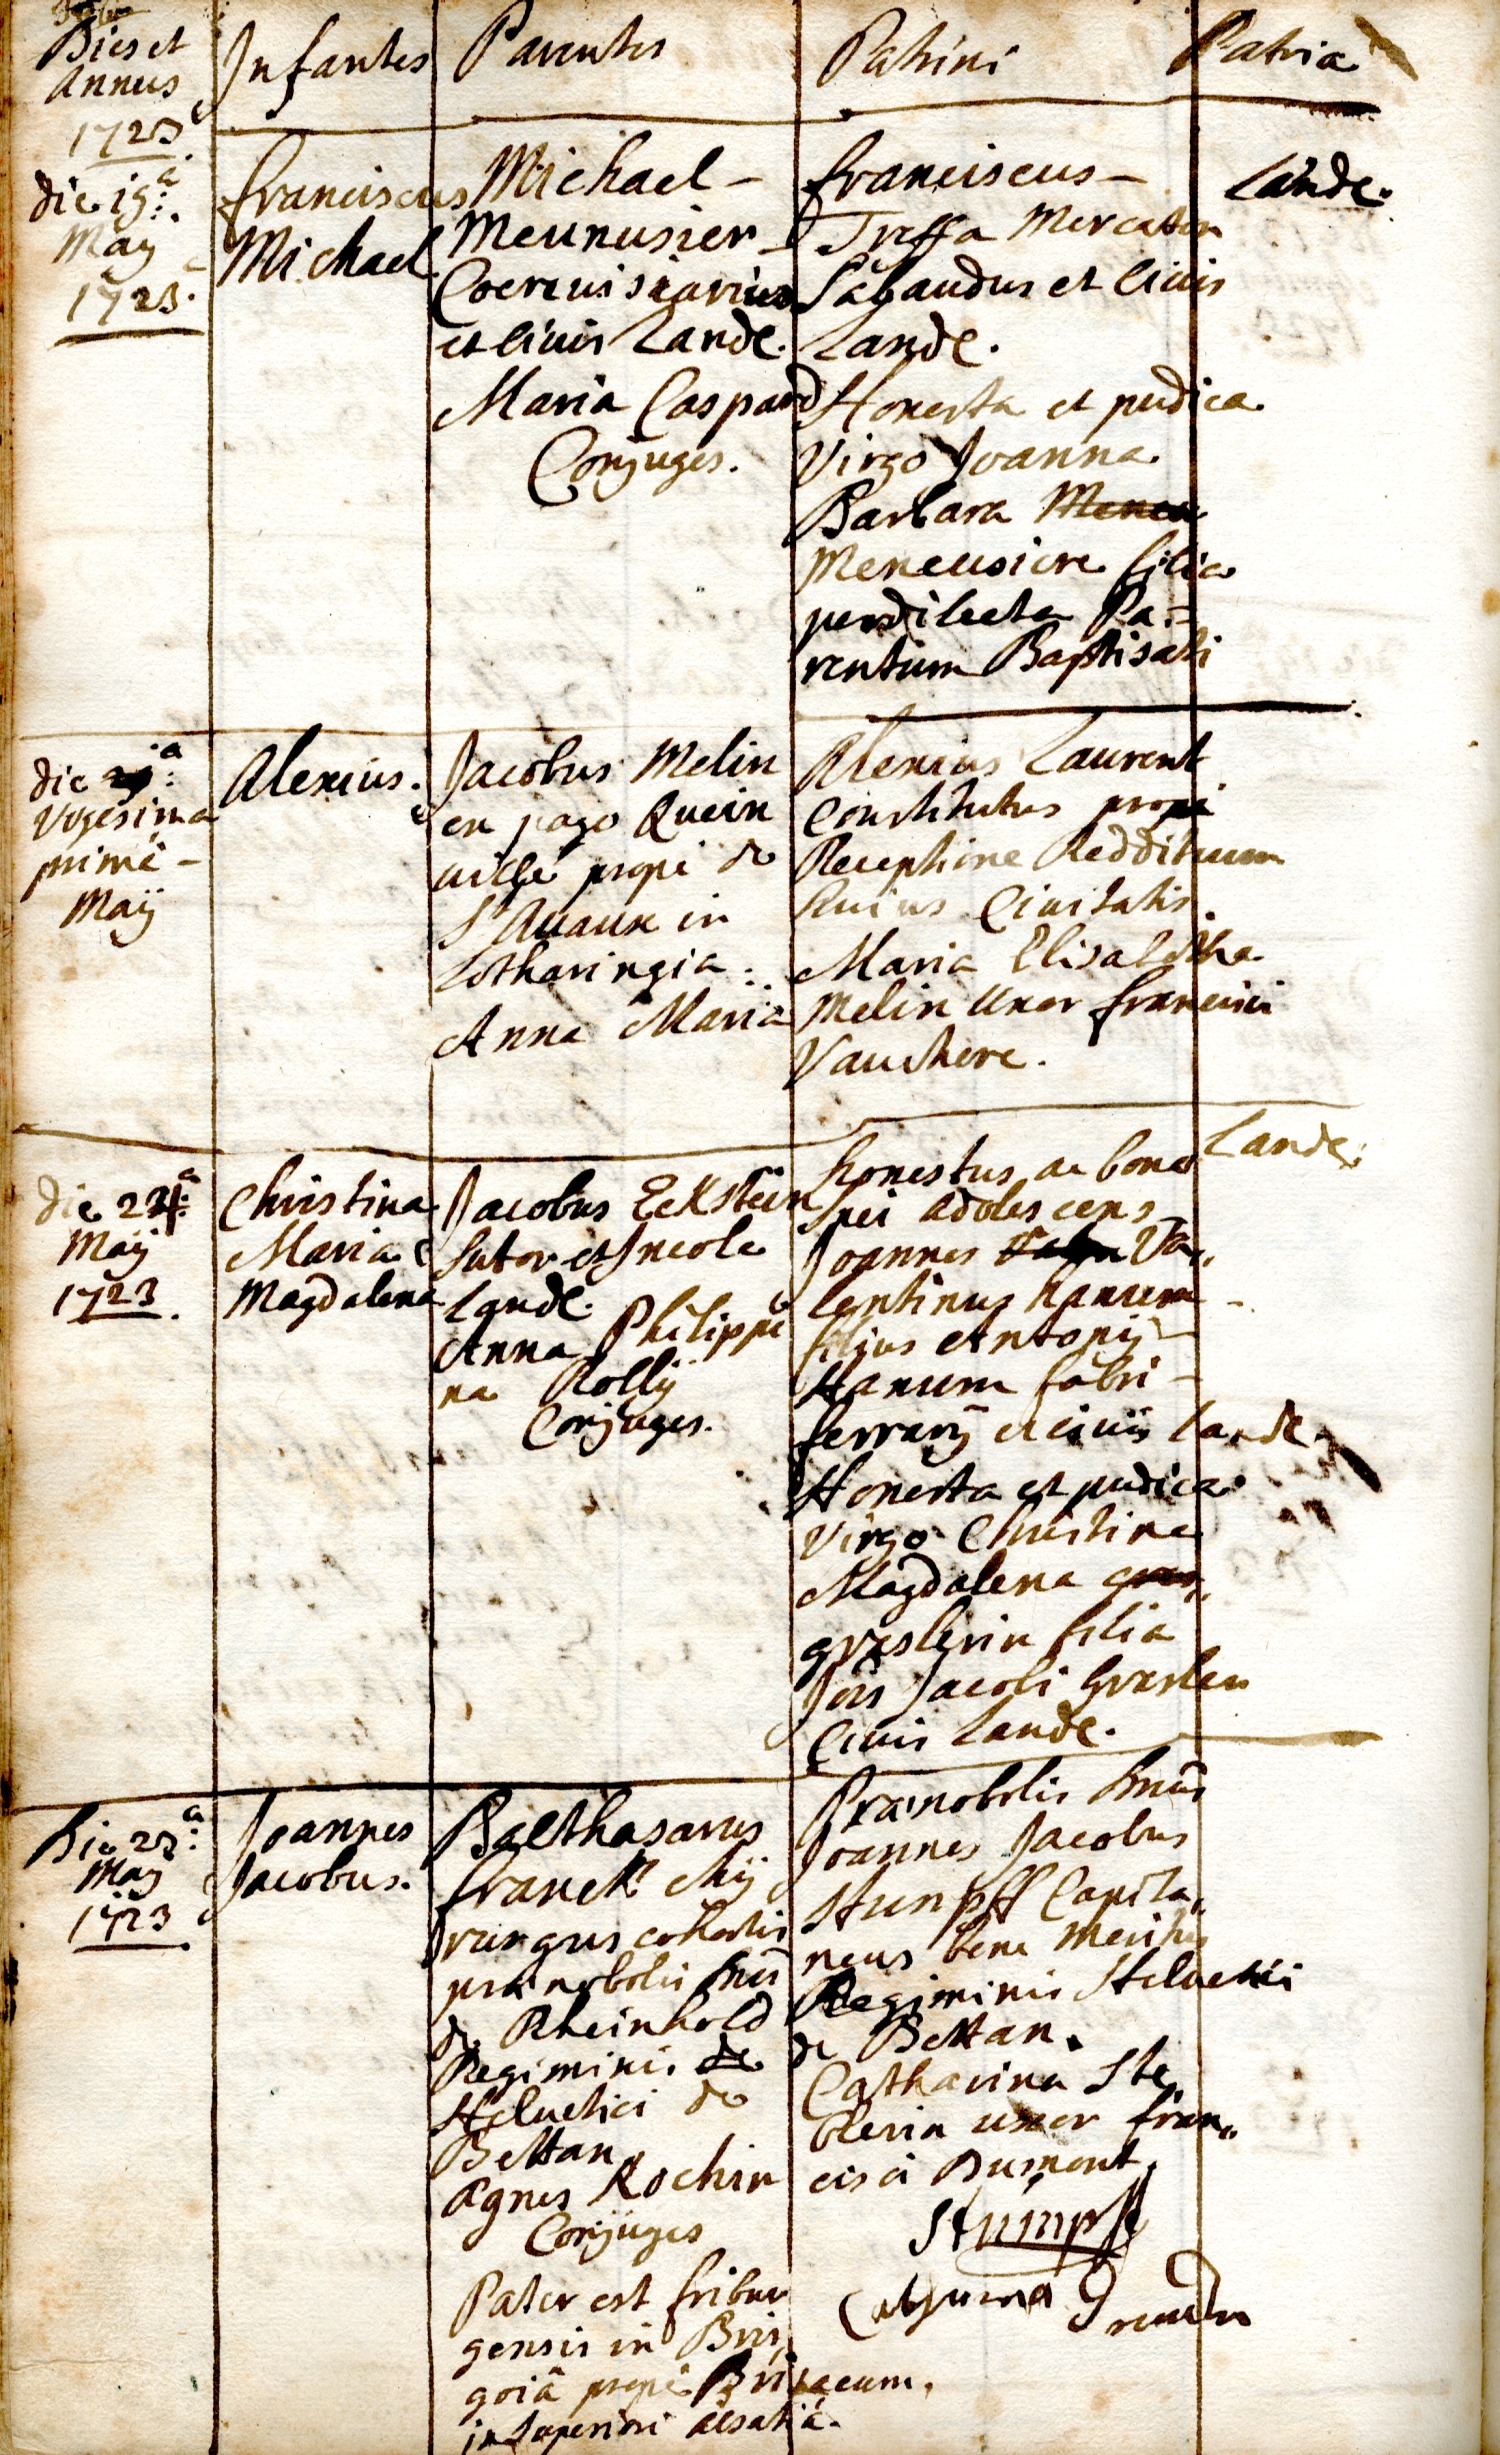 Dies et
Annus
1723
Infantes
Parentes
Patrini
Patria
die 19a:
Maÿ
1723.
franciscus
Michael
Michael -
Meunusier -
Coereuisiarius
et civis Landæ.
Maria Caspard
Conjuges.
franciscus -
Treffa Mercator
Sabaudus et civis
Landæ.
Honesta et pudica
Virgo Joanna
Barbara
Meneusiere filia
perdilecta Pa:=
rentum Baptisati
Landæ.
die
Vigesima
primâ -
Maÿ
Alexius.
Jacobus Melin
ex pago Quein
uille propè de
St Auaux in
Lotharingia.
Anna Maria
Alexius Laurent
Constitutus pro
Receptione Reddituum
huius Ciuitatis.
Maria Elisabetha
Melin Uxor francisci
Vauthere.
die 24a:
Maÿ
1723.
Christina
Maria
Magdalena
Jacobus Eckstein
Sutor et Incola
Landæ.
Anna Philippi
na Rollÿ
Conjuges.
honestus ac bonæ
Spei adolescens
Joannes Va,,
lentinus hanum -
filius Antonÿ -
Hanum fabri -
ferrarÿ et civis Landæ.
Honesta et pudica
Virgo Christina
Magdalena
græslerin filia
Jois Jacobi Græsler
Civis Landæ.
Landæ.
Die 25a:
Maÿ
1723.
Joannes
Jacobus.
Balthasarus
franck
cohortis
prænobolis Dnis
de Rheinhold
Regiminis
Heluetici de
Bettan.
Agnes Kochin
Conjuges
Pater est fribur
gensis in Bris,
goiâ propè Brisacum,
in Superiori alsatiâ.
Prænobolis Dnus
Joannes Jacobus
Stumpff Capita,
neus bene Meritus
Regiminis Heluetici
de Bettan.
Catharina Ste,
blerin uxor fran,,
cisci Dumont.
Stumpff